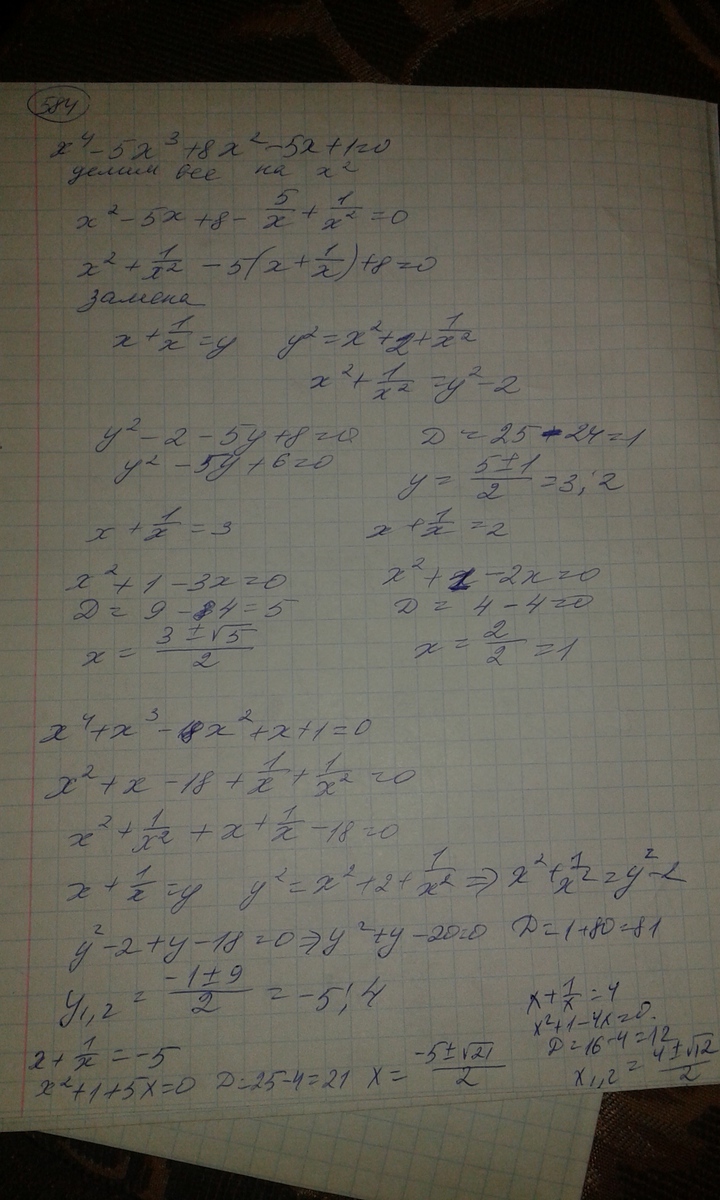 584
x⁴-5x³+8x²-5x+1=0
делим все на x²
x²-5x+8-5/x+1/x²=0
x²+1/x²-5(x+1/x)+8=0
замена
x+1/x=y y²=x²+2+1/x²
x²+1/x²=y²-2
y²-2-5y+8=0 D=25-24=1
y²-5y+6=0
y=(5±1)/2=3;2
x+1/x=3 x+1/x=2
x²+1-3x=0 x²+1-2x=0
D=9-4=5 D=4-4=0
x=(3±√5)/2 x=2/2=1
x⁴+x³-18x²+x+1=0
x²+x-18+1/x+1/x²=0
x²+1/x²+x+1/x-18=0
x+1/x=y y²=x²+2+1/x² ⇒ x²+1/x²=y²-2
y²-2+y-18=0 ⇒ y²+y-20=0 D=1+80=81
y₁,₂=(-1±9)/2=-5;4
x+1/x=-5
x²+1+5x=0 D=25-4=21 x=(-5±√21)/2
x+1/x=4
x²+1-4x=0.
D=16-4=12
x₁,₂=(4±√12)/2